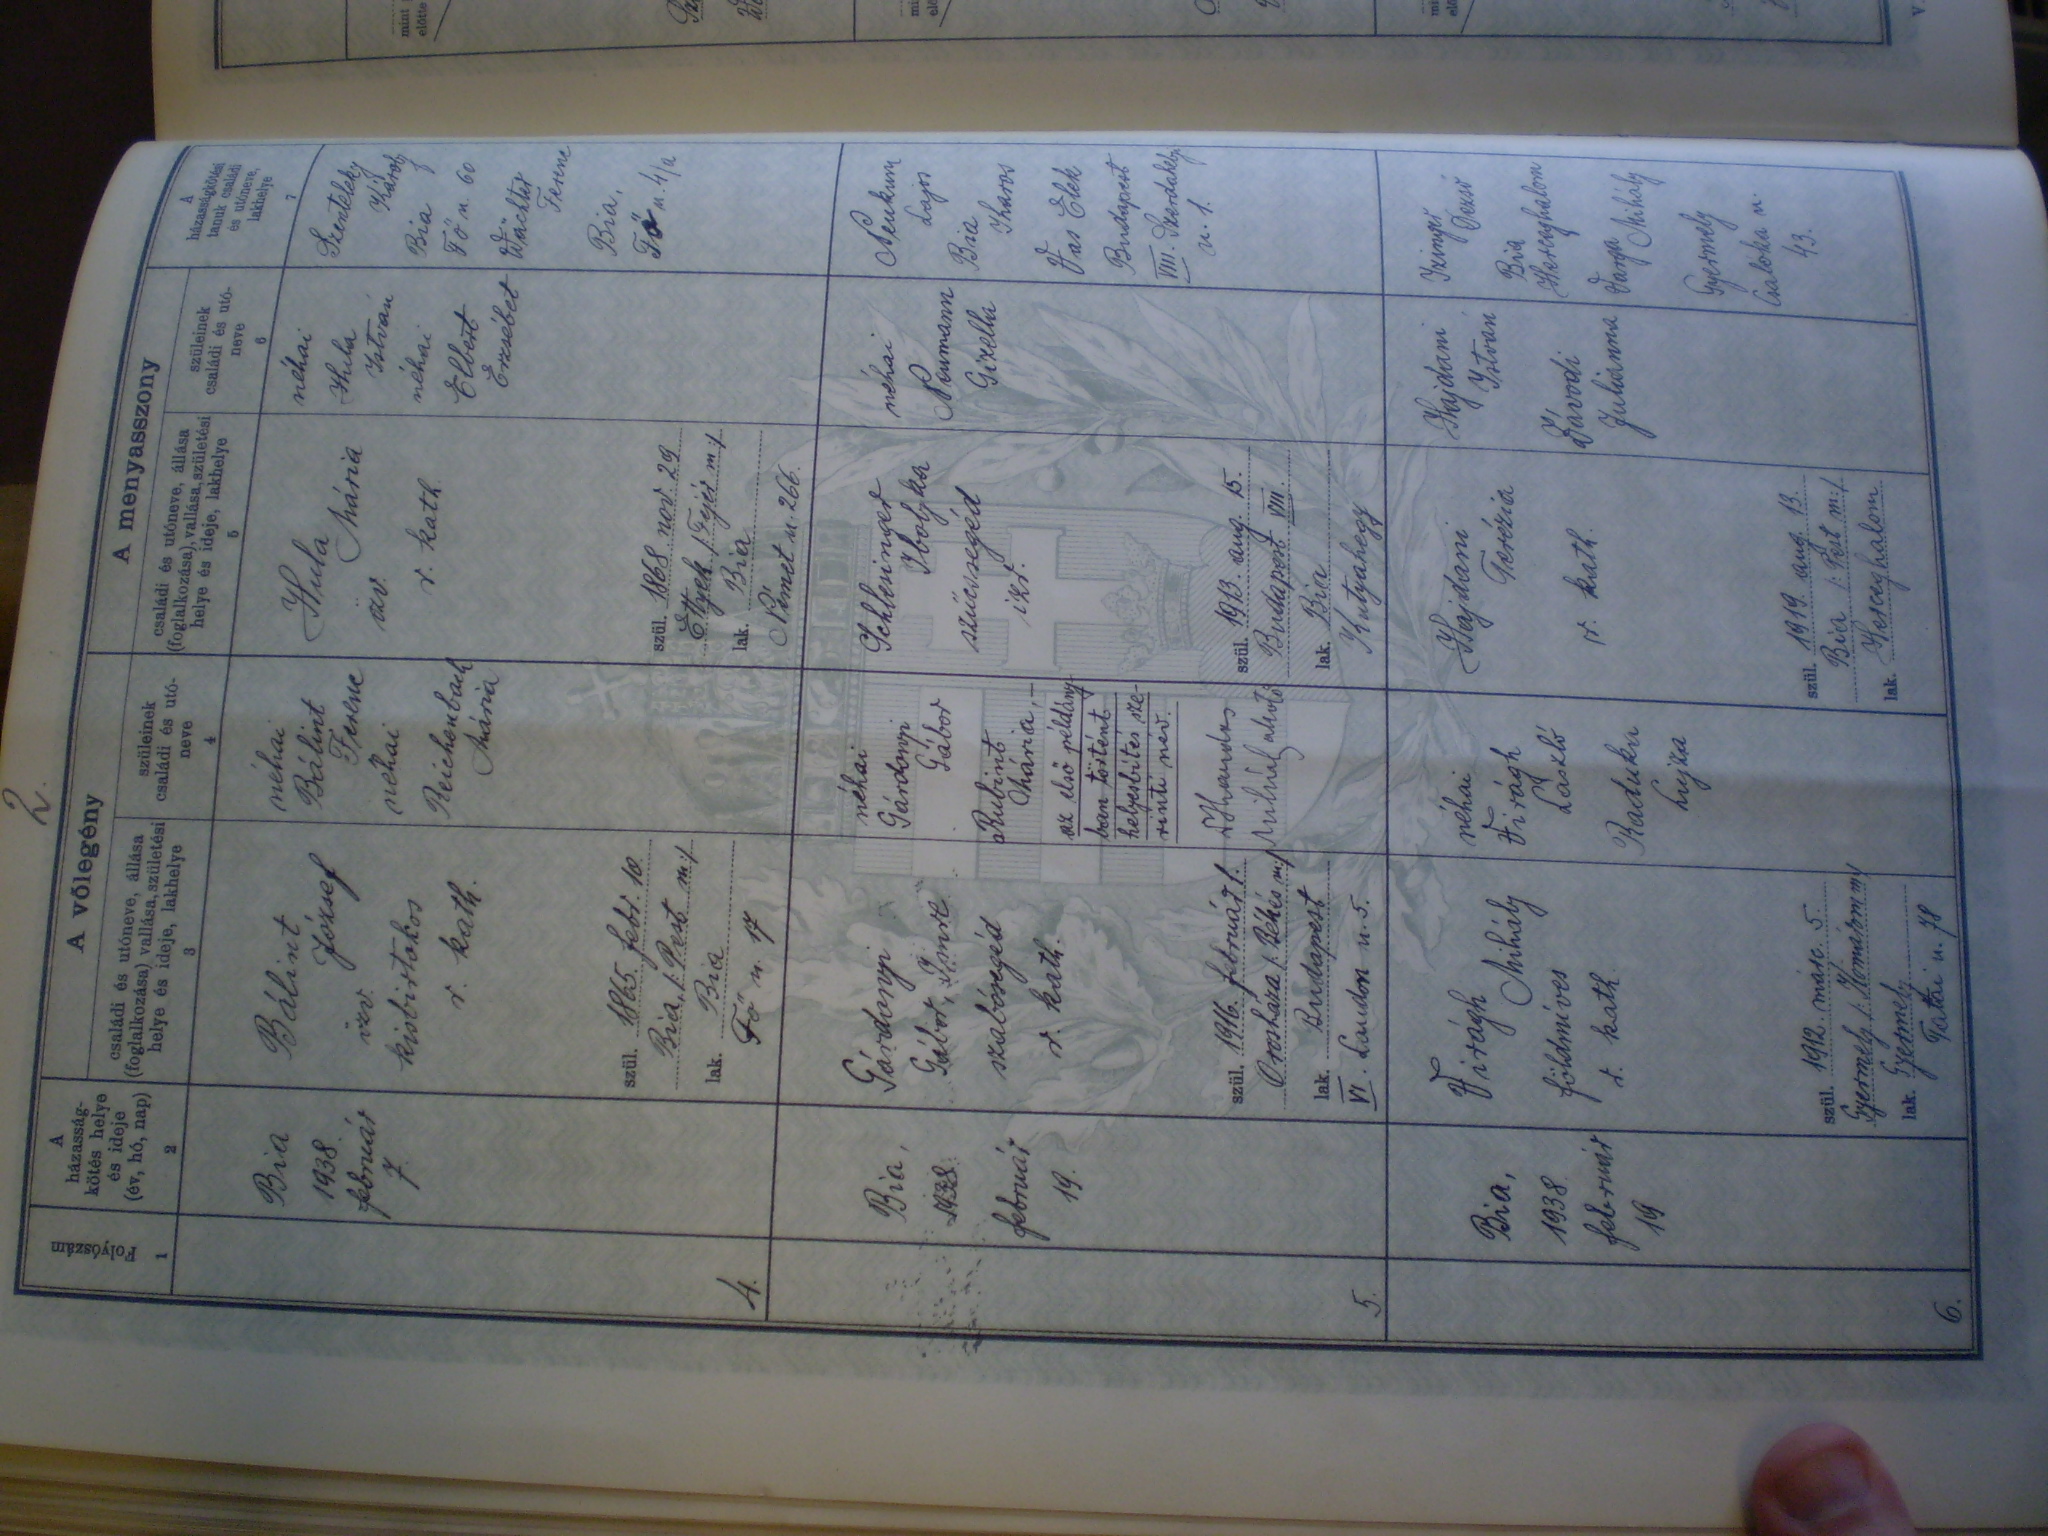 2.
A vőlegény
A menyasszony
Folyószám
A
házasság-
kötés helye
és ideje
(év, hó, nap)
családi és utóneve, állása
(foglalkozása) vallása, születési
helye és ideje, lakhelye
szüleinek
családi és utó-
neve
családi és utóneve, állása
(foglalkozása), vallása, születési
helye és ideje, lakhelye
szüleinek
családi és utó-
neve
A
házasságkötési
tanuk családi
és utóneve,
lakhelye
1
2
3
4
5
6
7
4.
Bia
1938.
február
7.
Bálint
József
özv.
kisbirtokos
r. kath.
szül. 1865 febr. 10
Bia, /: Pest m:/
lak. Bia
Fő u. 17
néhai
Bálint
Ferenc
néhai
Reichenbach
Mária
Hula
Mária
özv.
r. kath.
szül. 1868 nov 29
Etyek /: Fejér m:/
lak. Bia
Német u. 266.
néhai
Hula
István
néhai
Elbert
Erzsébet
Szenteleky
Károly
Bia
Fő u. 60
Wächter
Ferenc
Bia,
Fő u. 4/a
5.
Bia,
1938.
február
19.
Gárdonyi
Gábor, Imre
szabósegéd
r. kath.
szül. 1916. február 1.
Orosháza /: Békés m:/
lak. Budapest
VI. Laudon u. 5.
néhai
Gárdonyi
Gábor
Rubint
Mária,-
az első példány-
ban történt
helyesbítés sze-
rinti név.
Schlesinger
Ibolyka
szücssegéd
izr.
szül. 1913. aug. 15.
Budapest VIII.
lak. Bia
Kutyahegy
néhai
Neumann
Gizella
Lajos
Bia
Vas Elek
Budapest
VIII.
u. 1.
6.
Bia,
1938
február
19
Virágh
Mihály
földmíves
r. kath.
szül. 1912. márc. 5.
Gyermely /: Komárom m:/
lak. Gyermely
u. 78
néhai
Virágh
László
Hajdani
Terézia
r. kath.
szül. 1919. aug. 13.
Bia /: Pest m:/
lak. Herceghalom
Hajdani
István
Závodi
Julianna
Dezső
Bia
Herceghalom
Varga Mihály
Gyermely
u.
43.
mint
előtte